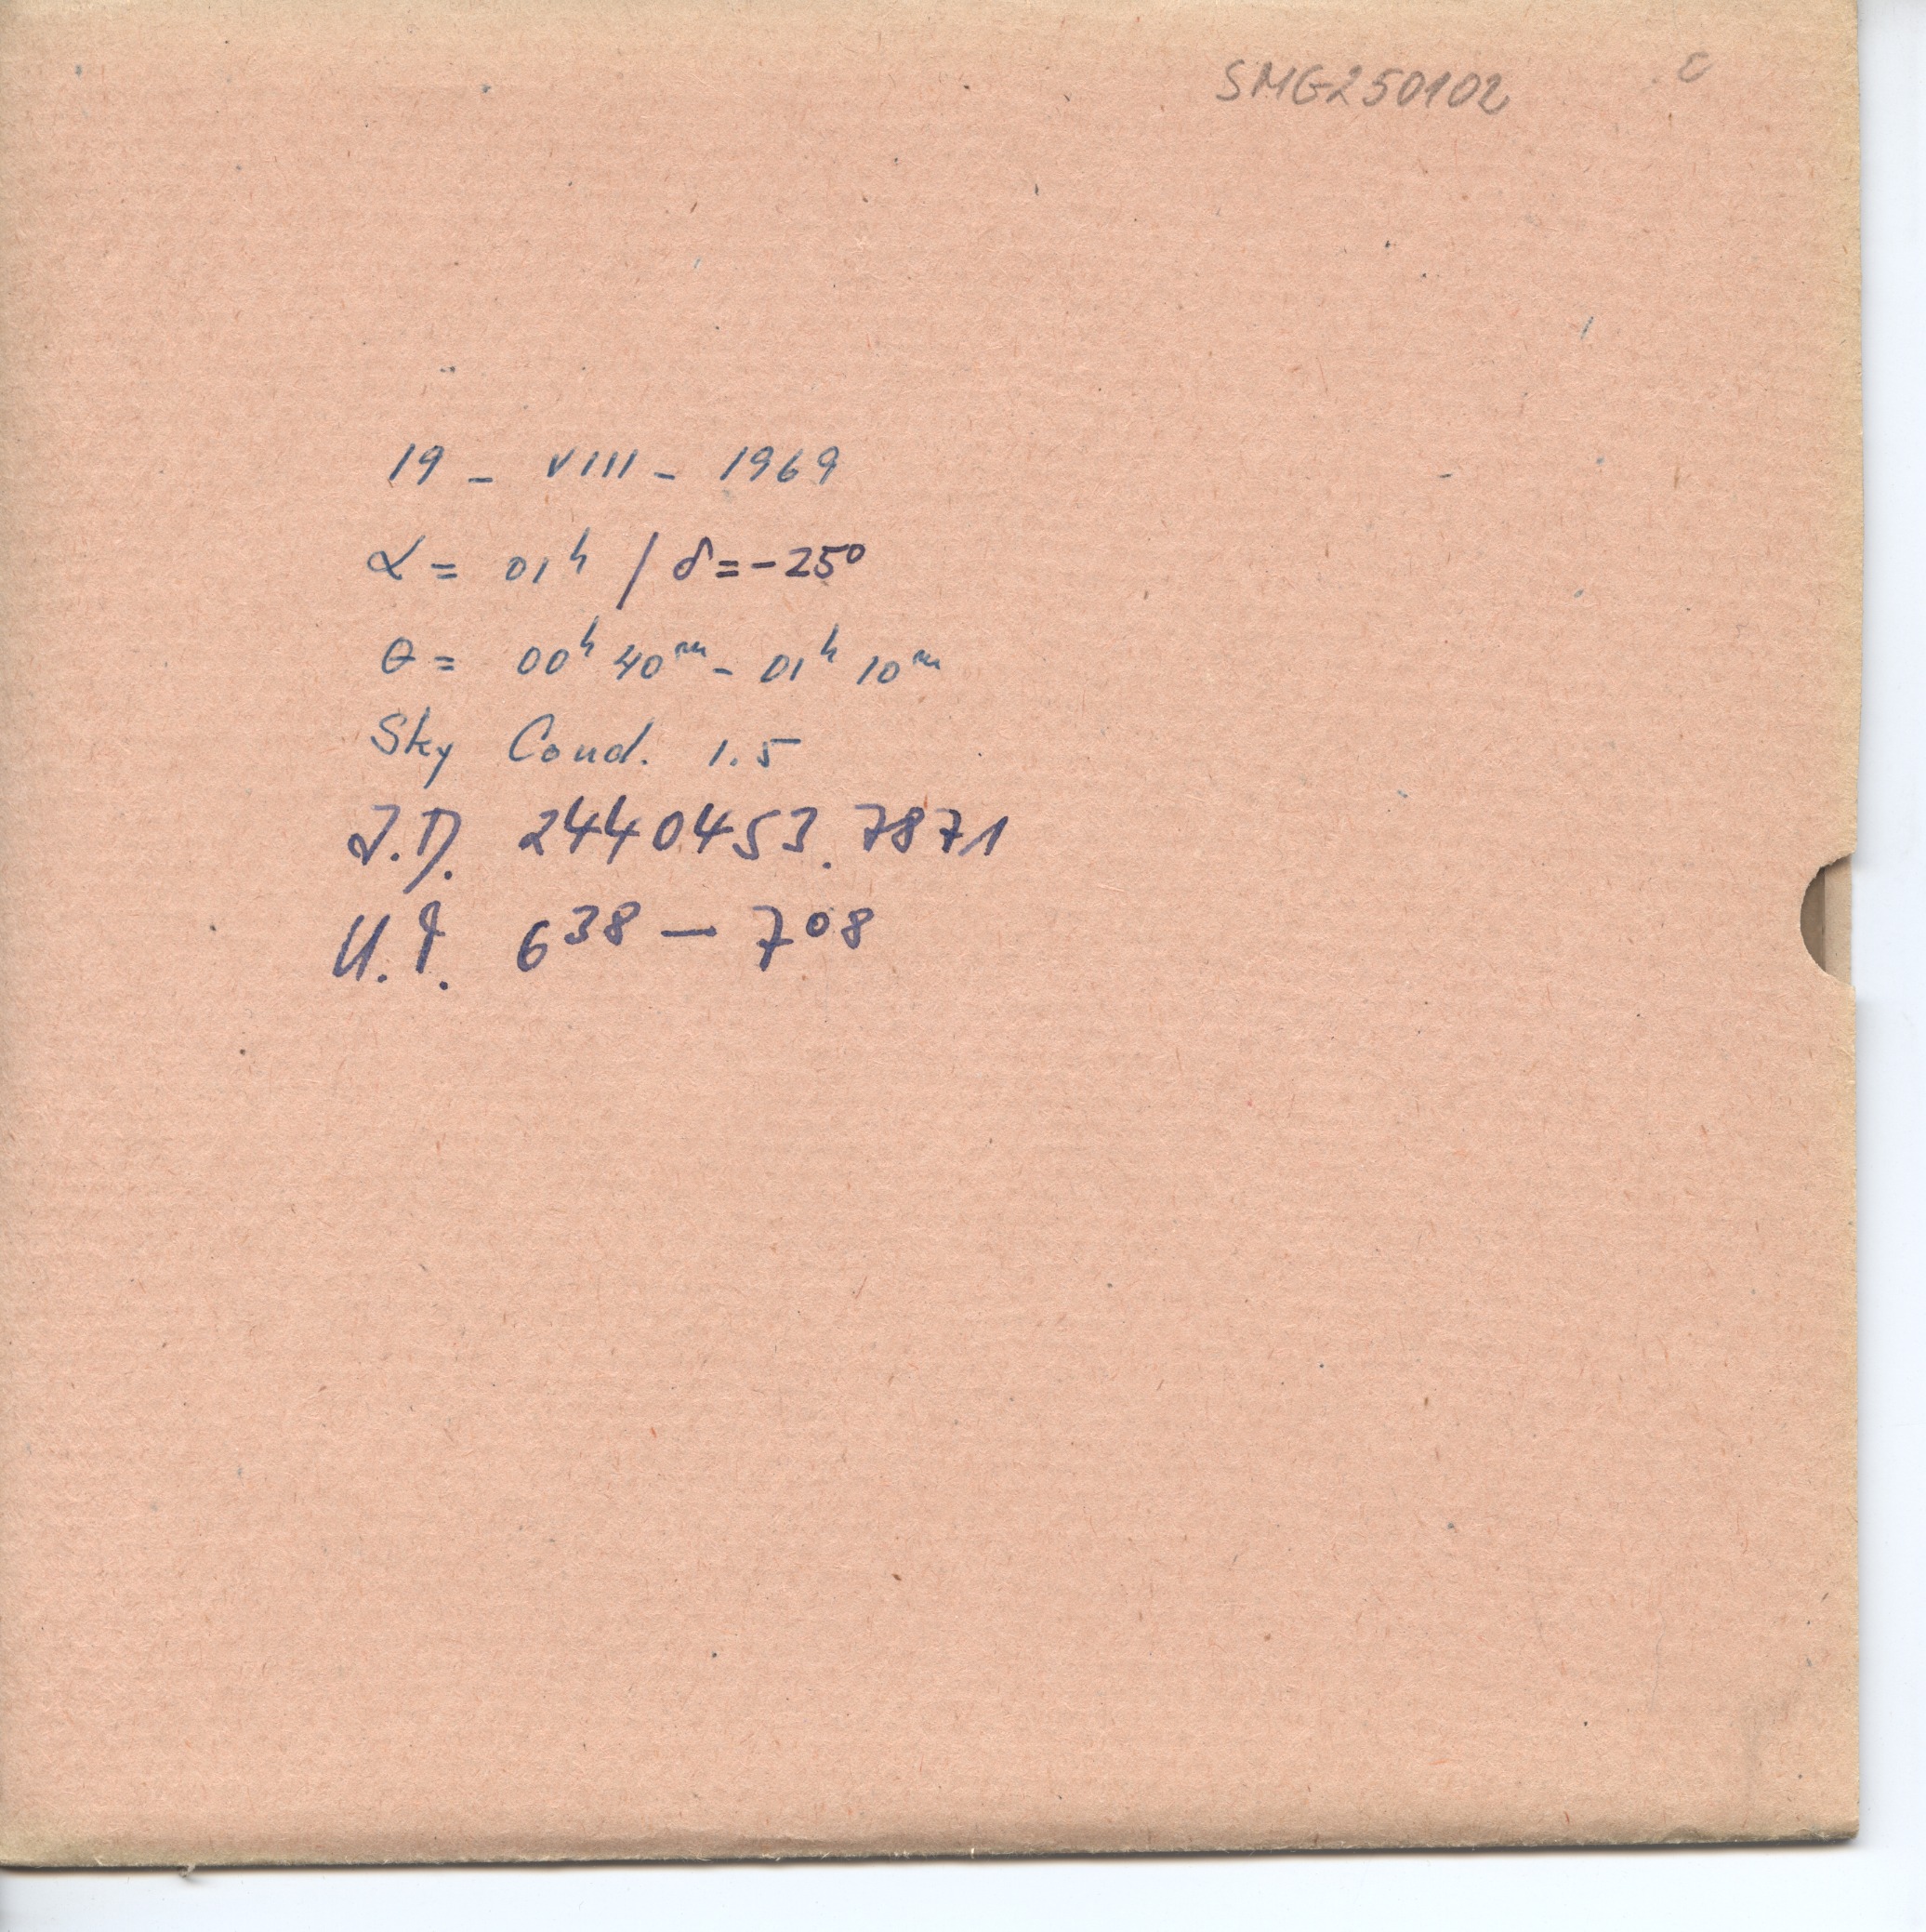 SMG250102 c
19 - VIII - 1969
α = 01ʰ / δ = -25°
θ = 00ʰ 40ᵐ - 01ʰ 10ᵐ
Sky Cond. 1.5
J.D. 2440453.7871
U.T. 6³⁸ — 7⁰⁸